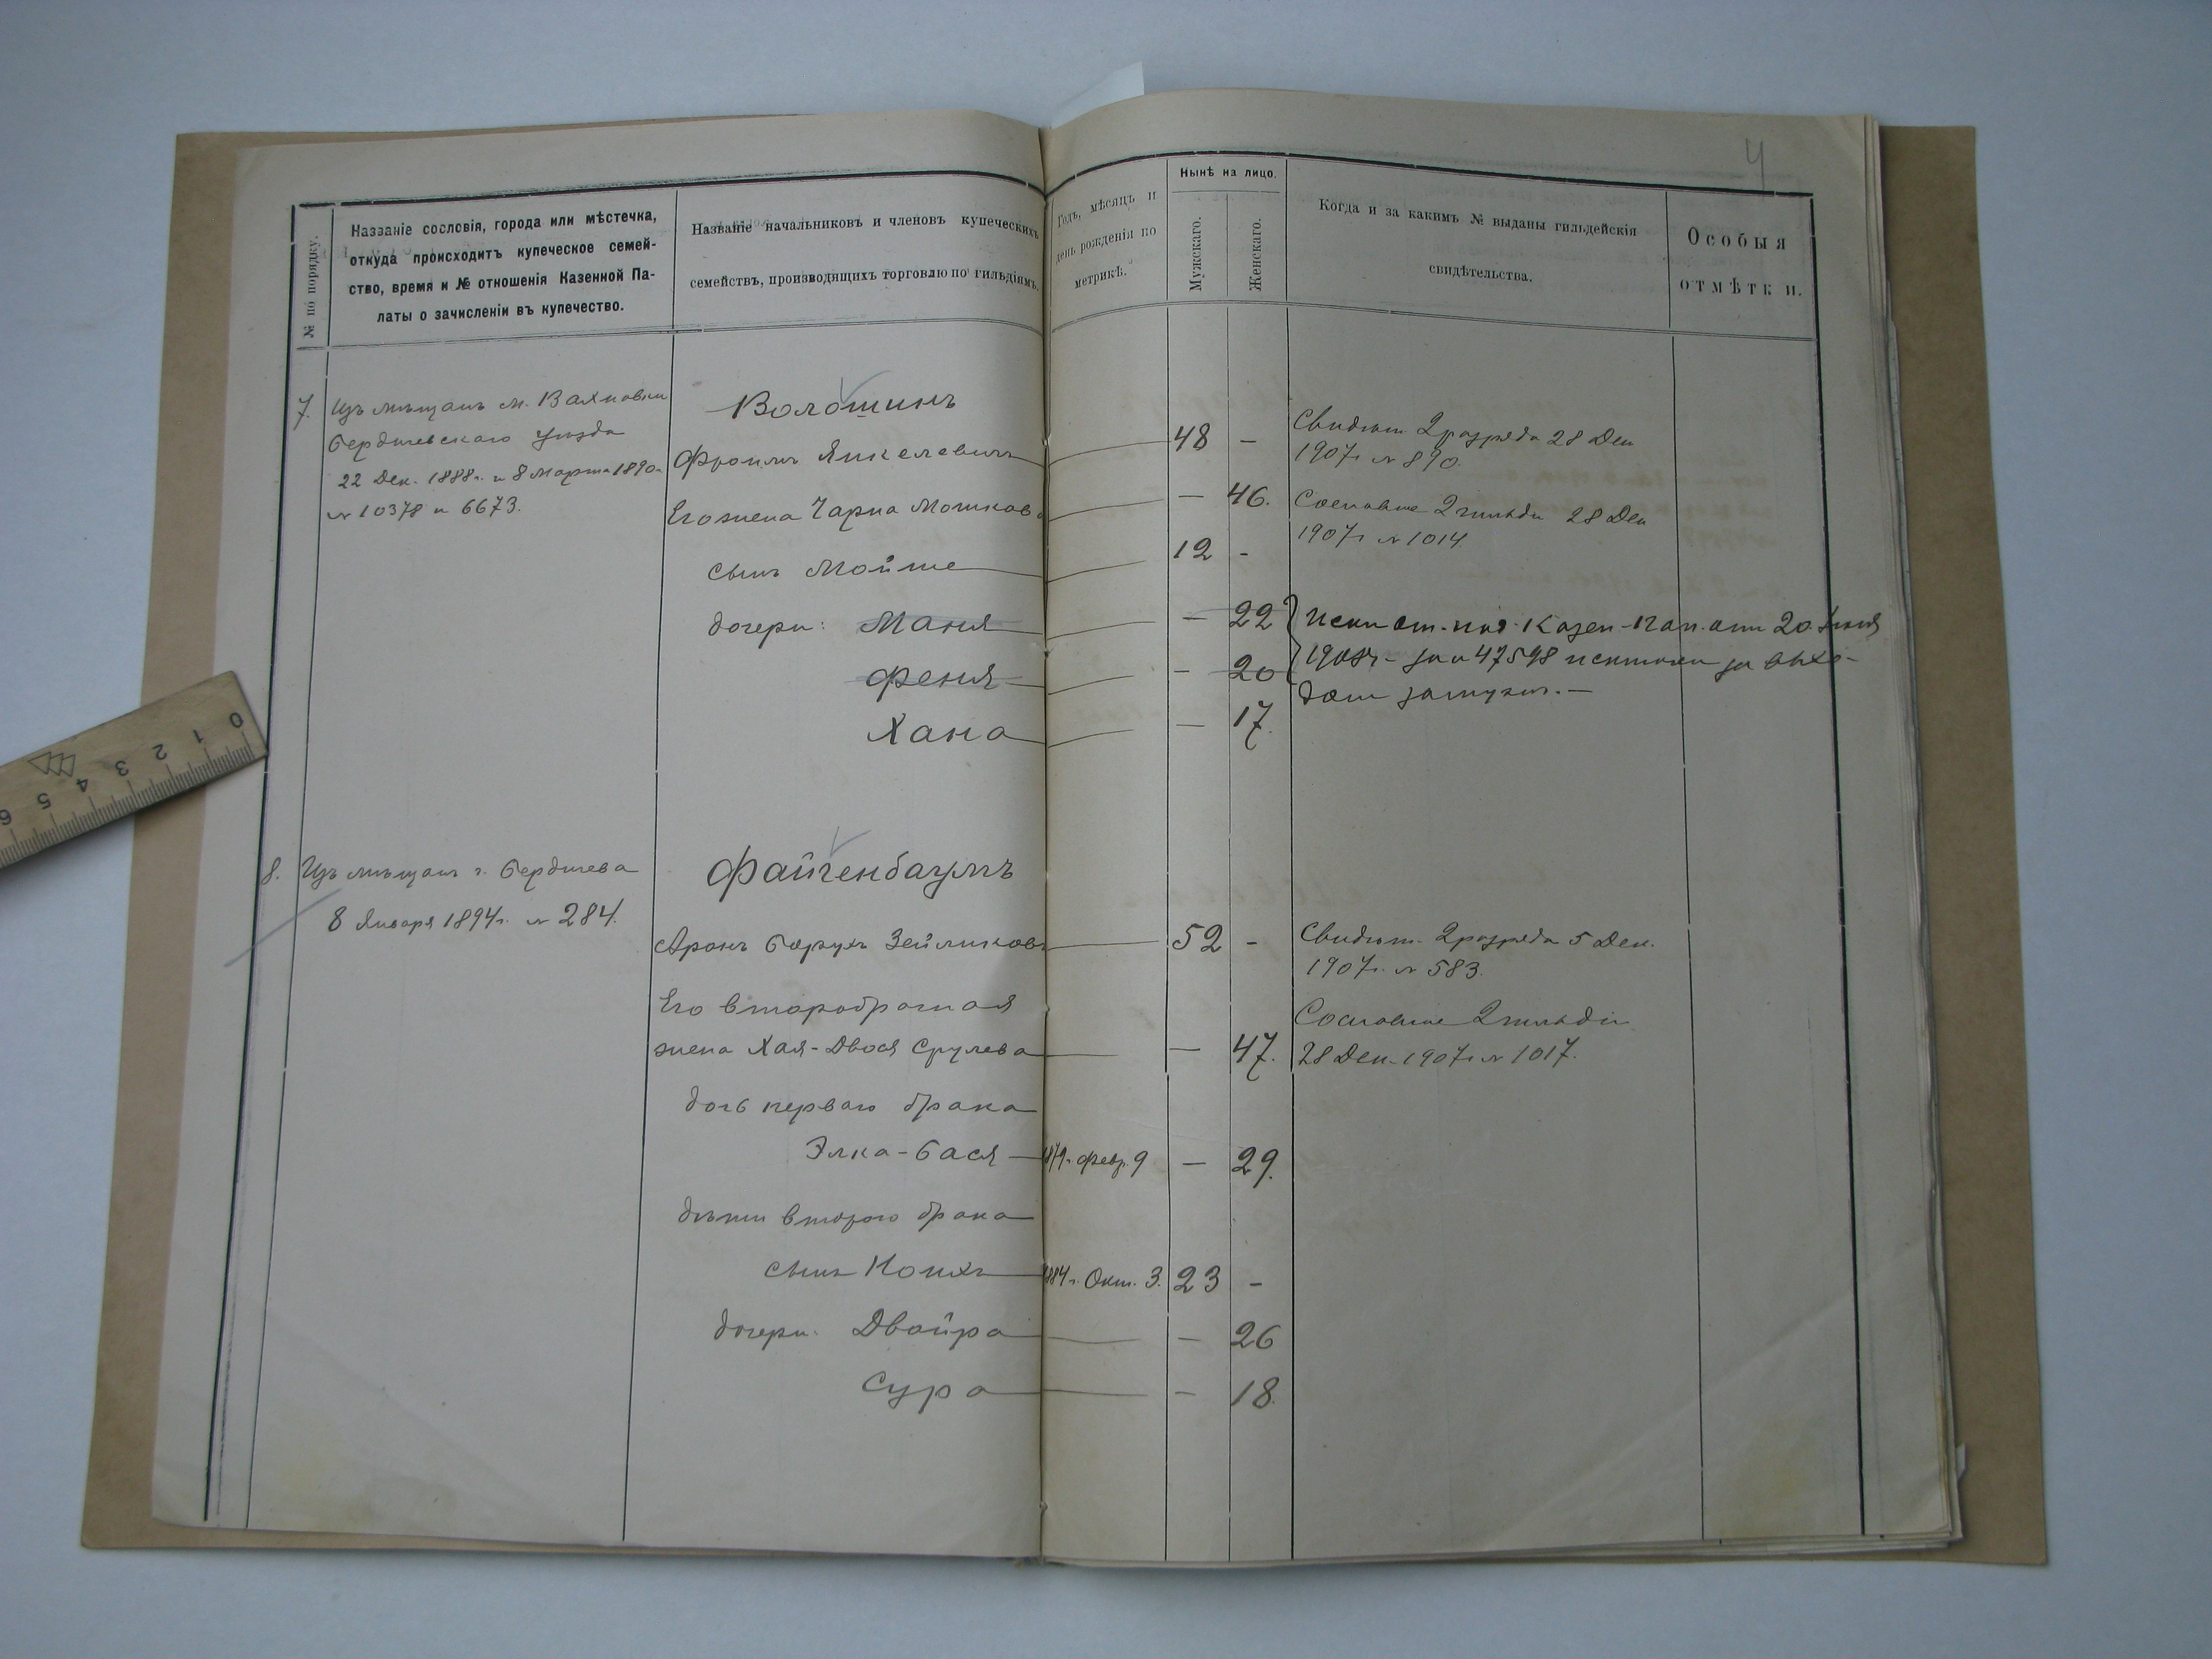 4
№ по порядку.
Названіе сословія, города или мѣстечка,
откуда происходитъ купеческое семей-
ство, время и № отношенія Казенной Па-
латы о зачисленіи въ купечество.
Названіе начальниковъ и членовъ купеческихъ
семействъ, производящихъ торговлю по гильдіямъ.
Годъ, мѣсяцъ и
день рожденія по
метрикѣ.
Нынѣ на лицо.
Мужскаго.
Женскаго.
Когда и за какимъ № выданы гильдейскія
свидѣтельства.
Особыя
отмѣтки.
7.
Изъ мѣщанъ м. Вахновки
Бердичевскаго уѣзда
22 Дек. 1888г. и 8 Марта 1890г.
№ 10378 и 6673.
Волошинъ
Фроимъ Янкелевичъ 48 -
Его жена Чарна Мошкова — 46.
сынъ Мойше 12 -
дочери: Маня — 22
Феня - 20
Хана — 17.
Свидѣт. 2 разряда 28 Дек
1907г. № 890.
Сословие 2 гильди 28 Дек
1907г. № 1014.
Казен. Пал. отъ 20 Іюня
1908г. за № 47598 исключены за выхо-
домъ замужъ. —
8.
Изъ мѣщанъ г. Бердичева
8 Января 1894г. № 284.
Файгенбаумъ
Аронъ Борухъ Зейликовъ 52 -
Его второбрачная
жена Хая-Двося Срулева — 47.
дочь перваго брака
Элка-Бася 1879г. Февр. 9 — 29.
дѣти второго брака
сынъ Ноихъ 1884г. Окт. 3. 23 -
дочери: Двойра — 26
Сура - 18.
Свидѣт. 2 разряда 5 Дек.
1907г. № 583.
Сословие 2 гильдіи
28 Дек. 1907г. № 1017.
0 1 2 3 4 5 6